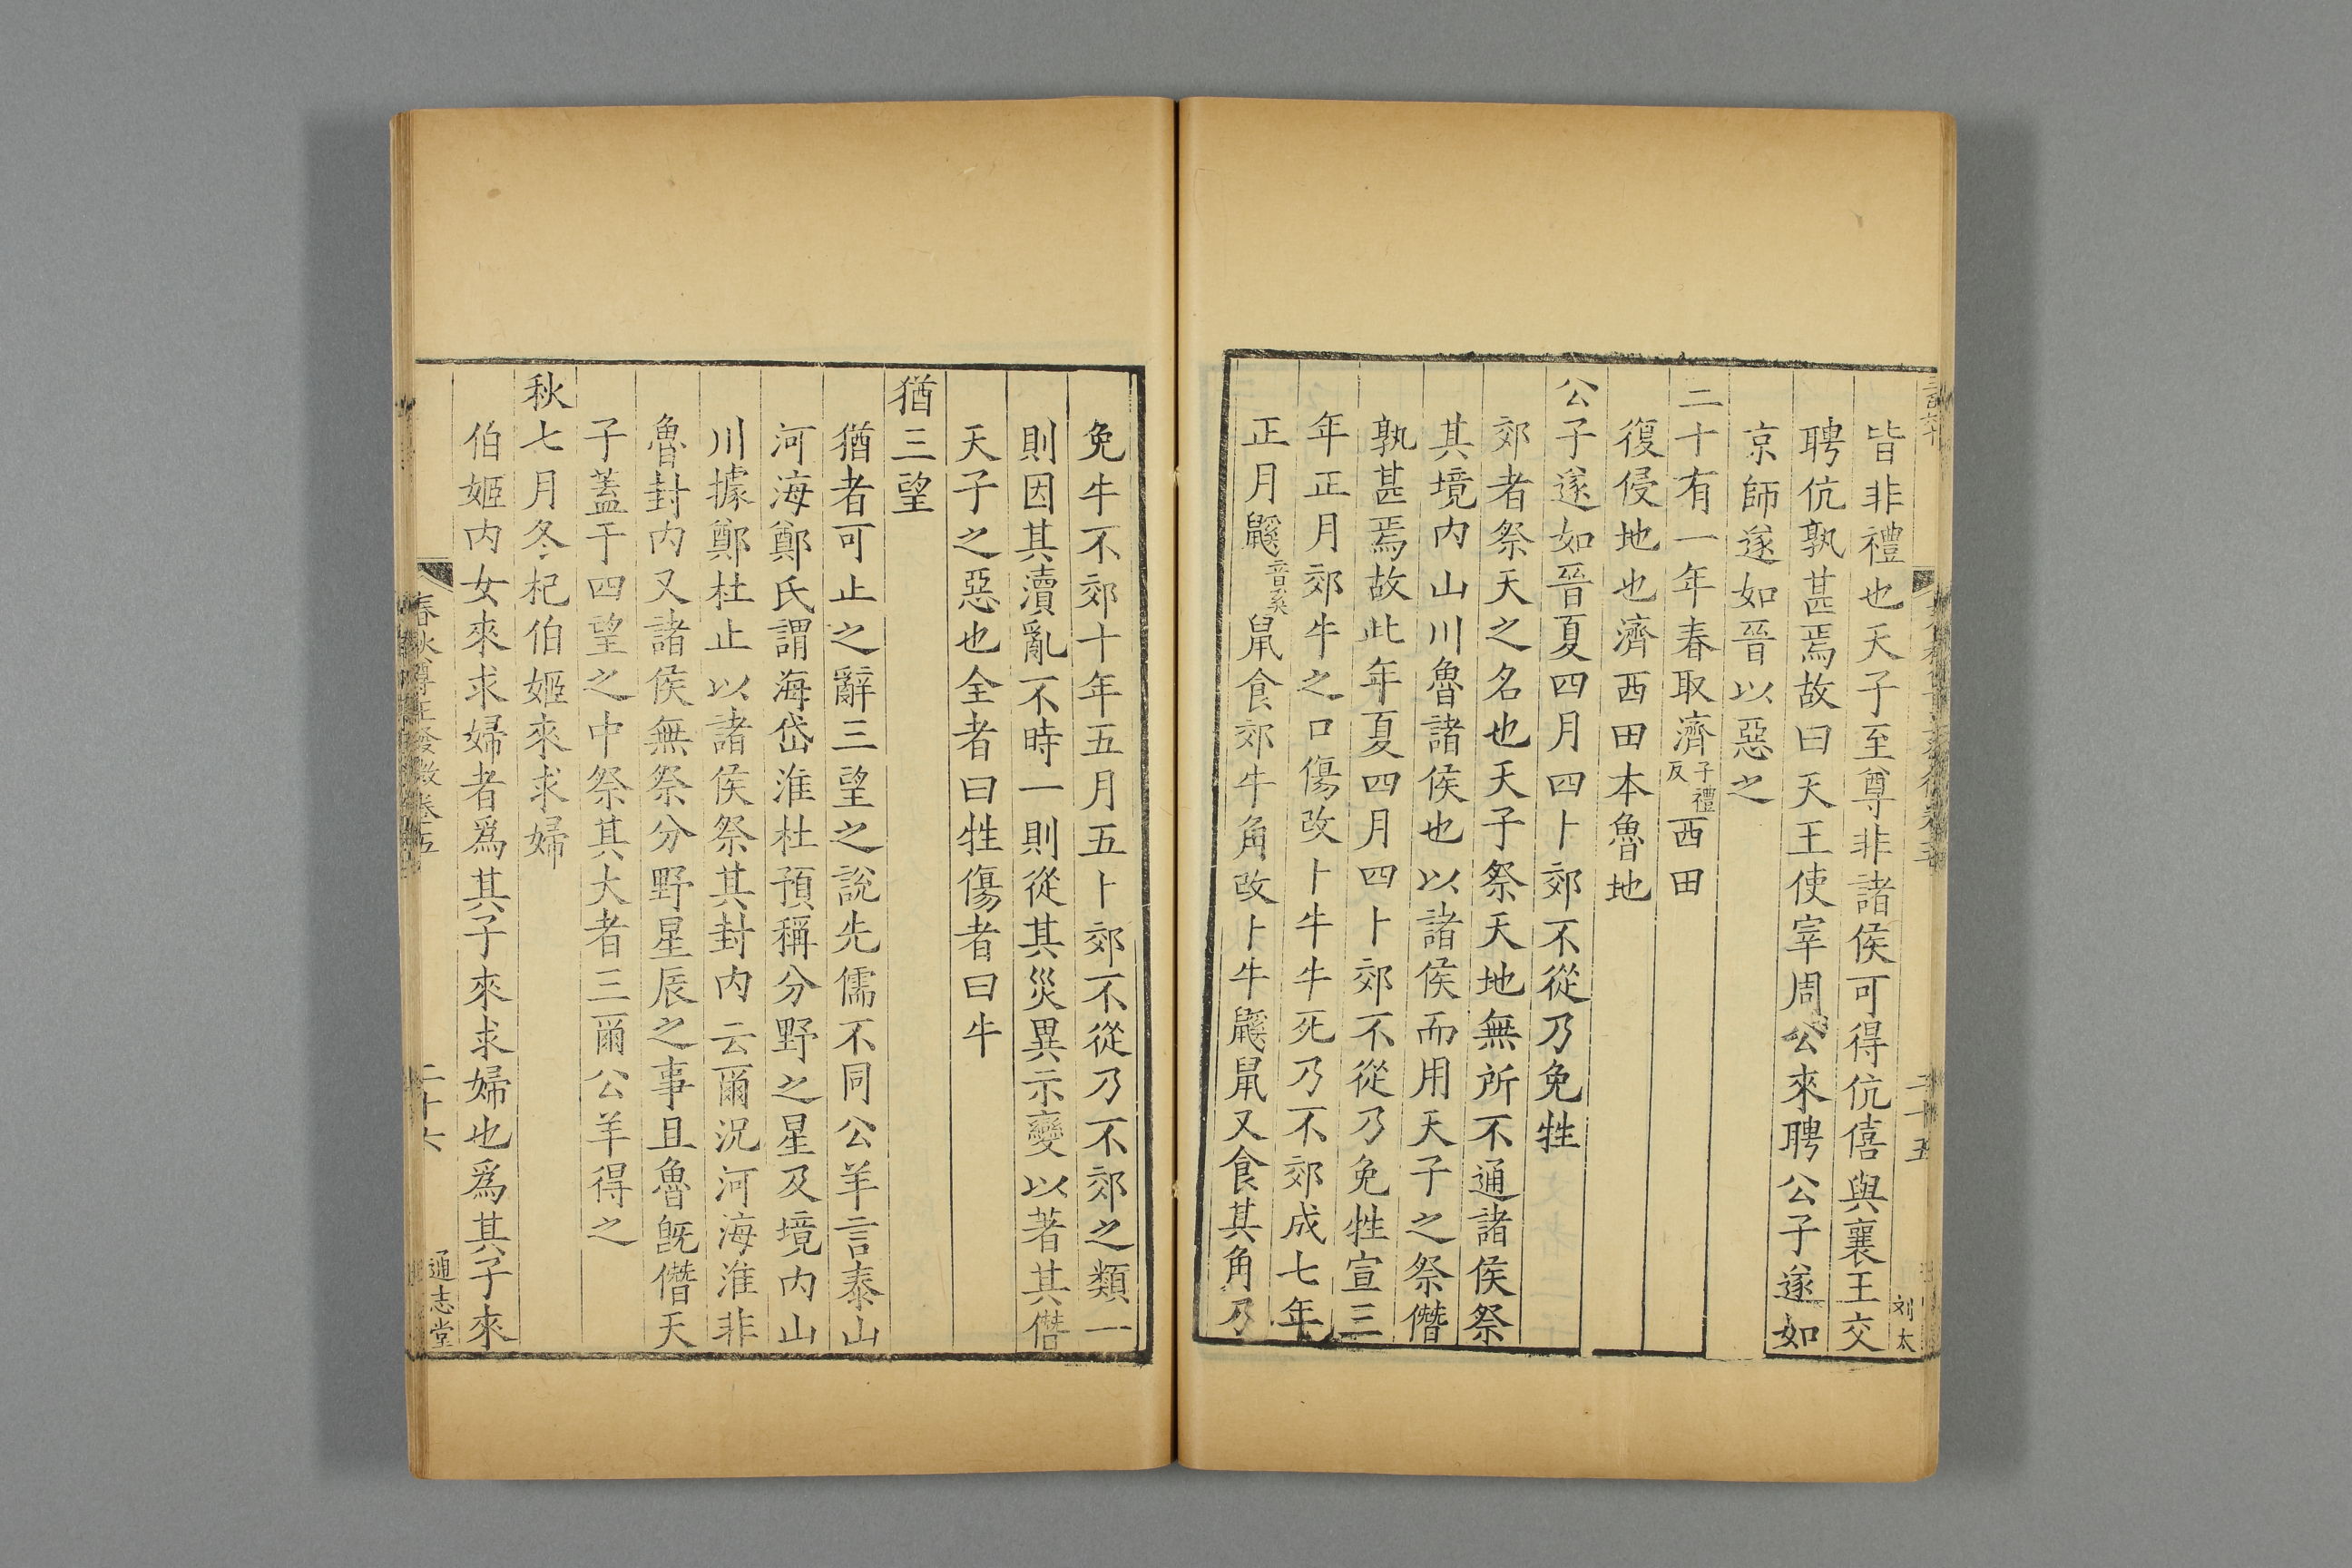 皆非禮也天子至尊非諸侯可得伉僖與襄王交
聘伉孰甚焉故曰天王使宰周公來聘公子遂如
京師遂如晉以惡之
三十有一年春取濟子禮反西田
復侵地也濟西田本魯地
公子遂如晉夏四月四卜郊不從乃免牲
郊者祭天之名也天子祭天地無所不通諸侯祭
其境內山川魯諸侯也以諸侯而用天子之祭僭
孰甚焉故此年夏四月四卜郊不從乃免牲宣三
年正月郊牛之口傷改卜牛牛死乃不郊成七年
正月鼷音奚鼠食郊牛角改卜牛鼷鼠又食其角乃
二十五
刘太
免牛不郊十年五月五卜郊不從乃不郊之類一
則因其瀆亂不時一則從其災異示變以著其僭
天子之惡也全者曰牲傷者曰牛
猶三望
猶者可止之辭三望之說先儒不同公羊言泰山
河海鄭氏謂海岱淮杜預稱分野之星及境內山
川據鄭杜止以諸侯祭其封內云爾況河海淮非
魯封內又諸侯無祭分野星辰之事且魯旣僭天
子蓋于四望之中祭其大者三爾公羊得之
秋七月冬杞伯姬來求婦
伯姬內女來求婦者爲其子來求婦也爲其子來
春秋尊王發微卷五
二十六
通志堂